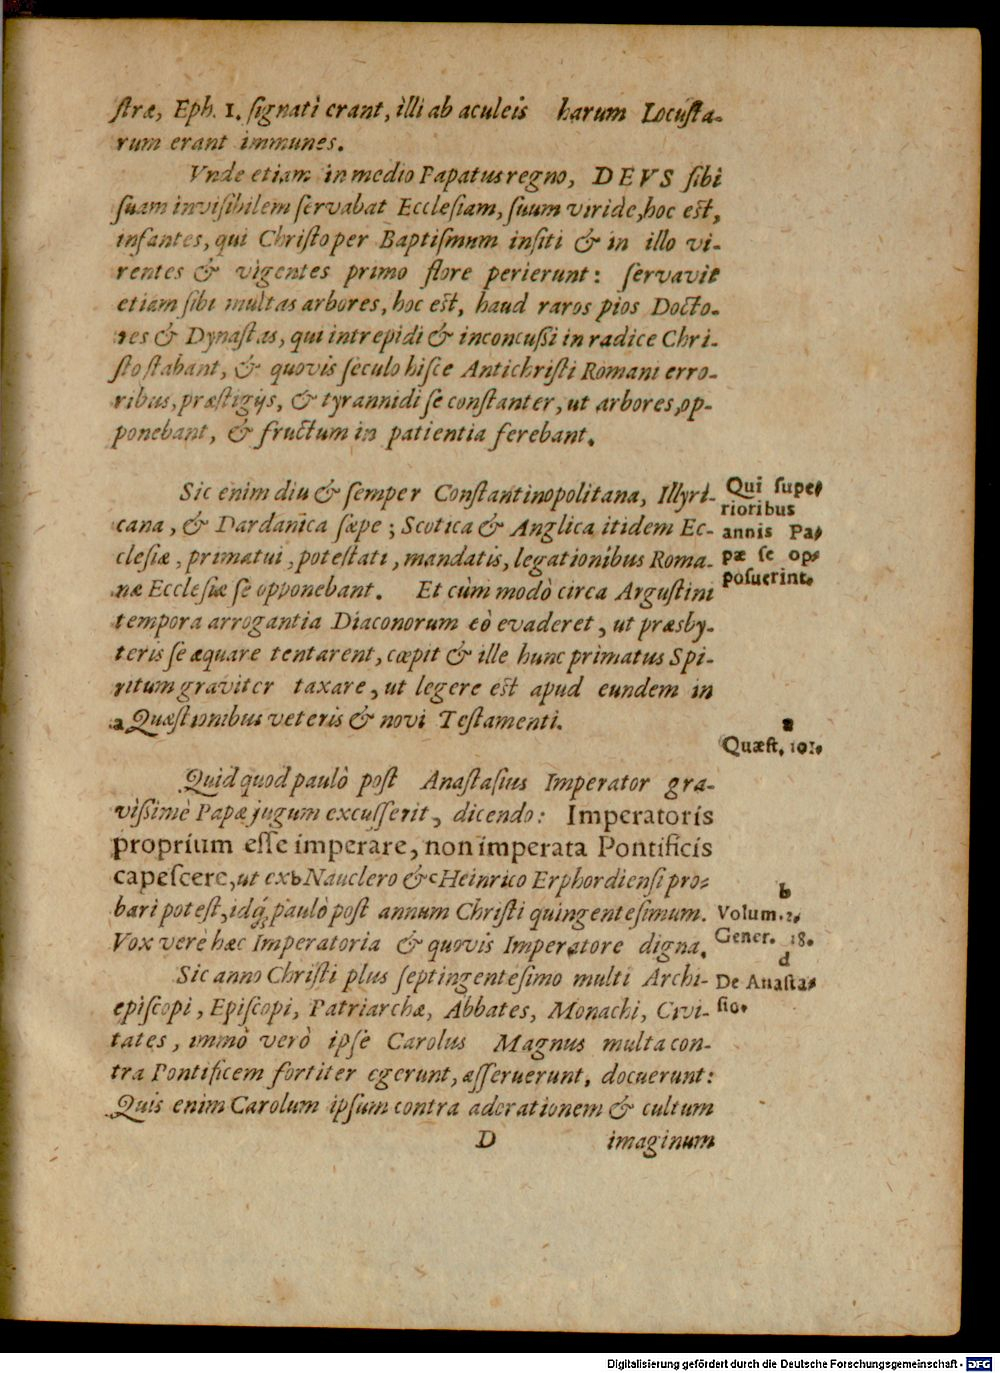 ſtræ, Eph. 1. ſignati erant, illi ab aculeis harum Locuſta-
rum erant immunes.
Vnde etiam in medio Papatus regno, DEVS ſibi
ſuam inviſibilem ſervabat Eccleſiam, ſuum viride, hoc eſt,
infantes, qui Chriſto per Baptiſmum inſiti & in illo vi-
rentes & vigentes primo flore perierunt: ſervavit
etiam ſibi multas arbores, hoc eſt, haud raros pios Docto-
res & Dynaſtas, qui intrepidi & inconcuſſi in radice Chri-
ſto ſtabant, & quovis ſeculo hiſce Antichriſti Romani erro-
ribus, præſtigijs, & tyrannidi ſe conſtanter, ut arbores, op-
ponebant, & fructum in patientia ferebant.
Sic enim diu & ſemper Conſtantinopolitana, Illyri-
cana, & Dardanica ſæpe; Scotica & Anglica itidem Ec-
cleſiæ, primatui, poteſtati, mandatis, legationibus Roma-
næ Eccleſiæ ſe opponebant. Et cùm modò circa Arguſtini
tempora arrogantia Diaconorum eò evaderet, ut præsby-
teris ſe æquare tentarent, cœpit & ille hunc primatus Spi-
ritum graviter taxare, ut legere eſt apud eundem in
a Quæſtionibus veteris & novi Teſtamenti.
Qui ſupe-
rioribus
annis Pa-
pæ ſe op-
poſuerint.
a
Quæſt. 101.
Quid quod paulò poſt Anaſtaſius Imperator gra-
viſſimè Papæ jugum excuſſerit, dicendo: Imperatoris
proprium eſſe imperare, non imperata Pontificis
capeſcere, ut ex b Nauclero & c Heinrico Erphordienſi pro-
bari poteſt, idq́; paulò poſt annum Chriſti quingenteſimum.
Vox verè hæc Imperatoria & quovis Imperatore digna.
Sic anno Chriſti plus ſeptingenteſimo multi Archi-
epiſcopi, Epiſcopi, Patriarchæ, Abbates, Monachi, Civi-
tates, immò verò ipſe Carolus Magnus multa con-
tra Pontificem fortiter egerunt, aſſeruerunt, docuerunt:
Quis enim Carolum ipſum contra adorationem & cultum
b
Volum. 2.
Gener. 18.
d
De Anaſta-
ſio.
D imaginum
Digitalisierung gefördert durch die Deutsche Forschungsgemeinschaft - DFG